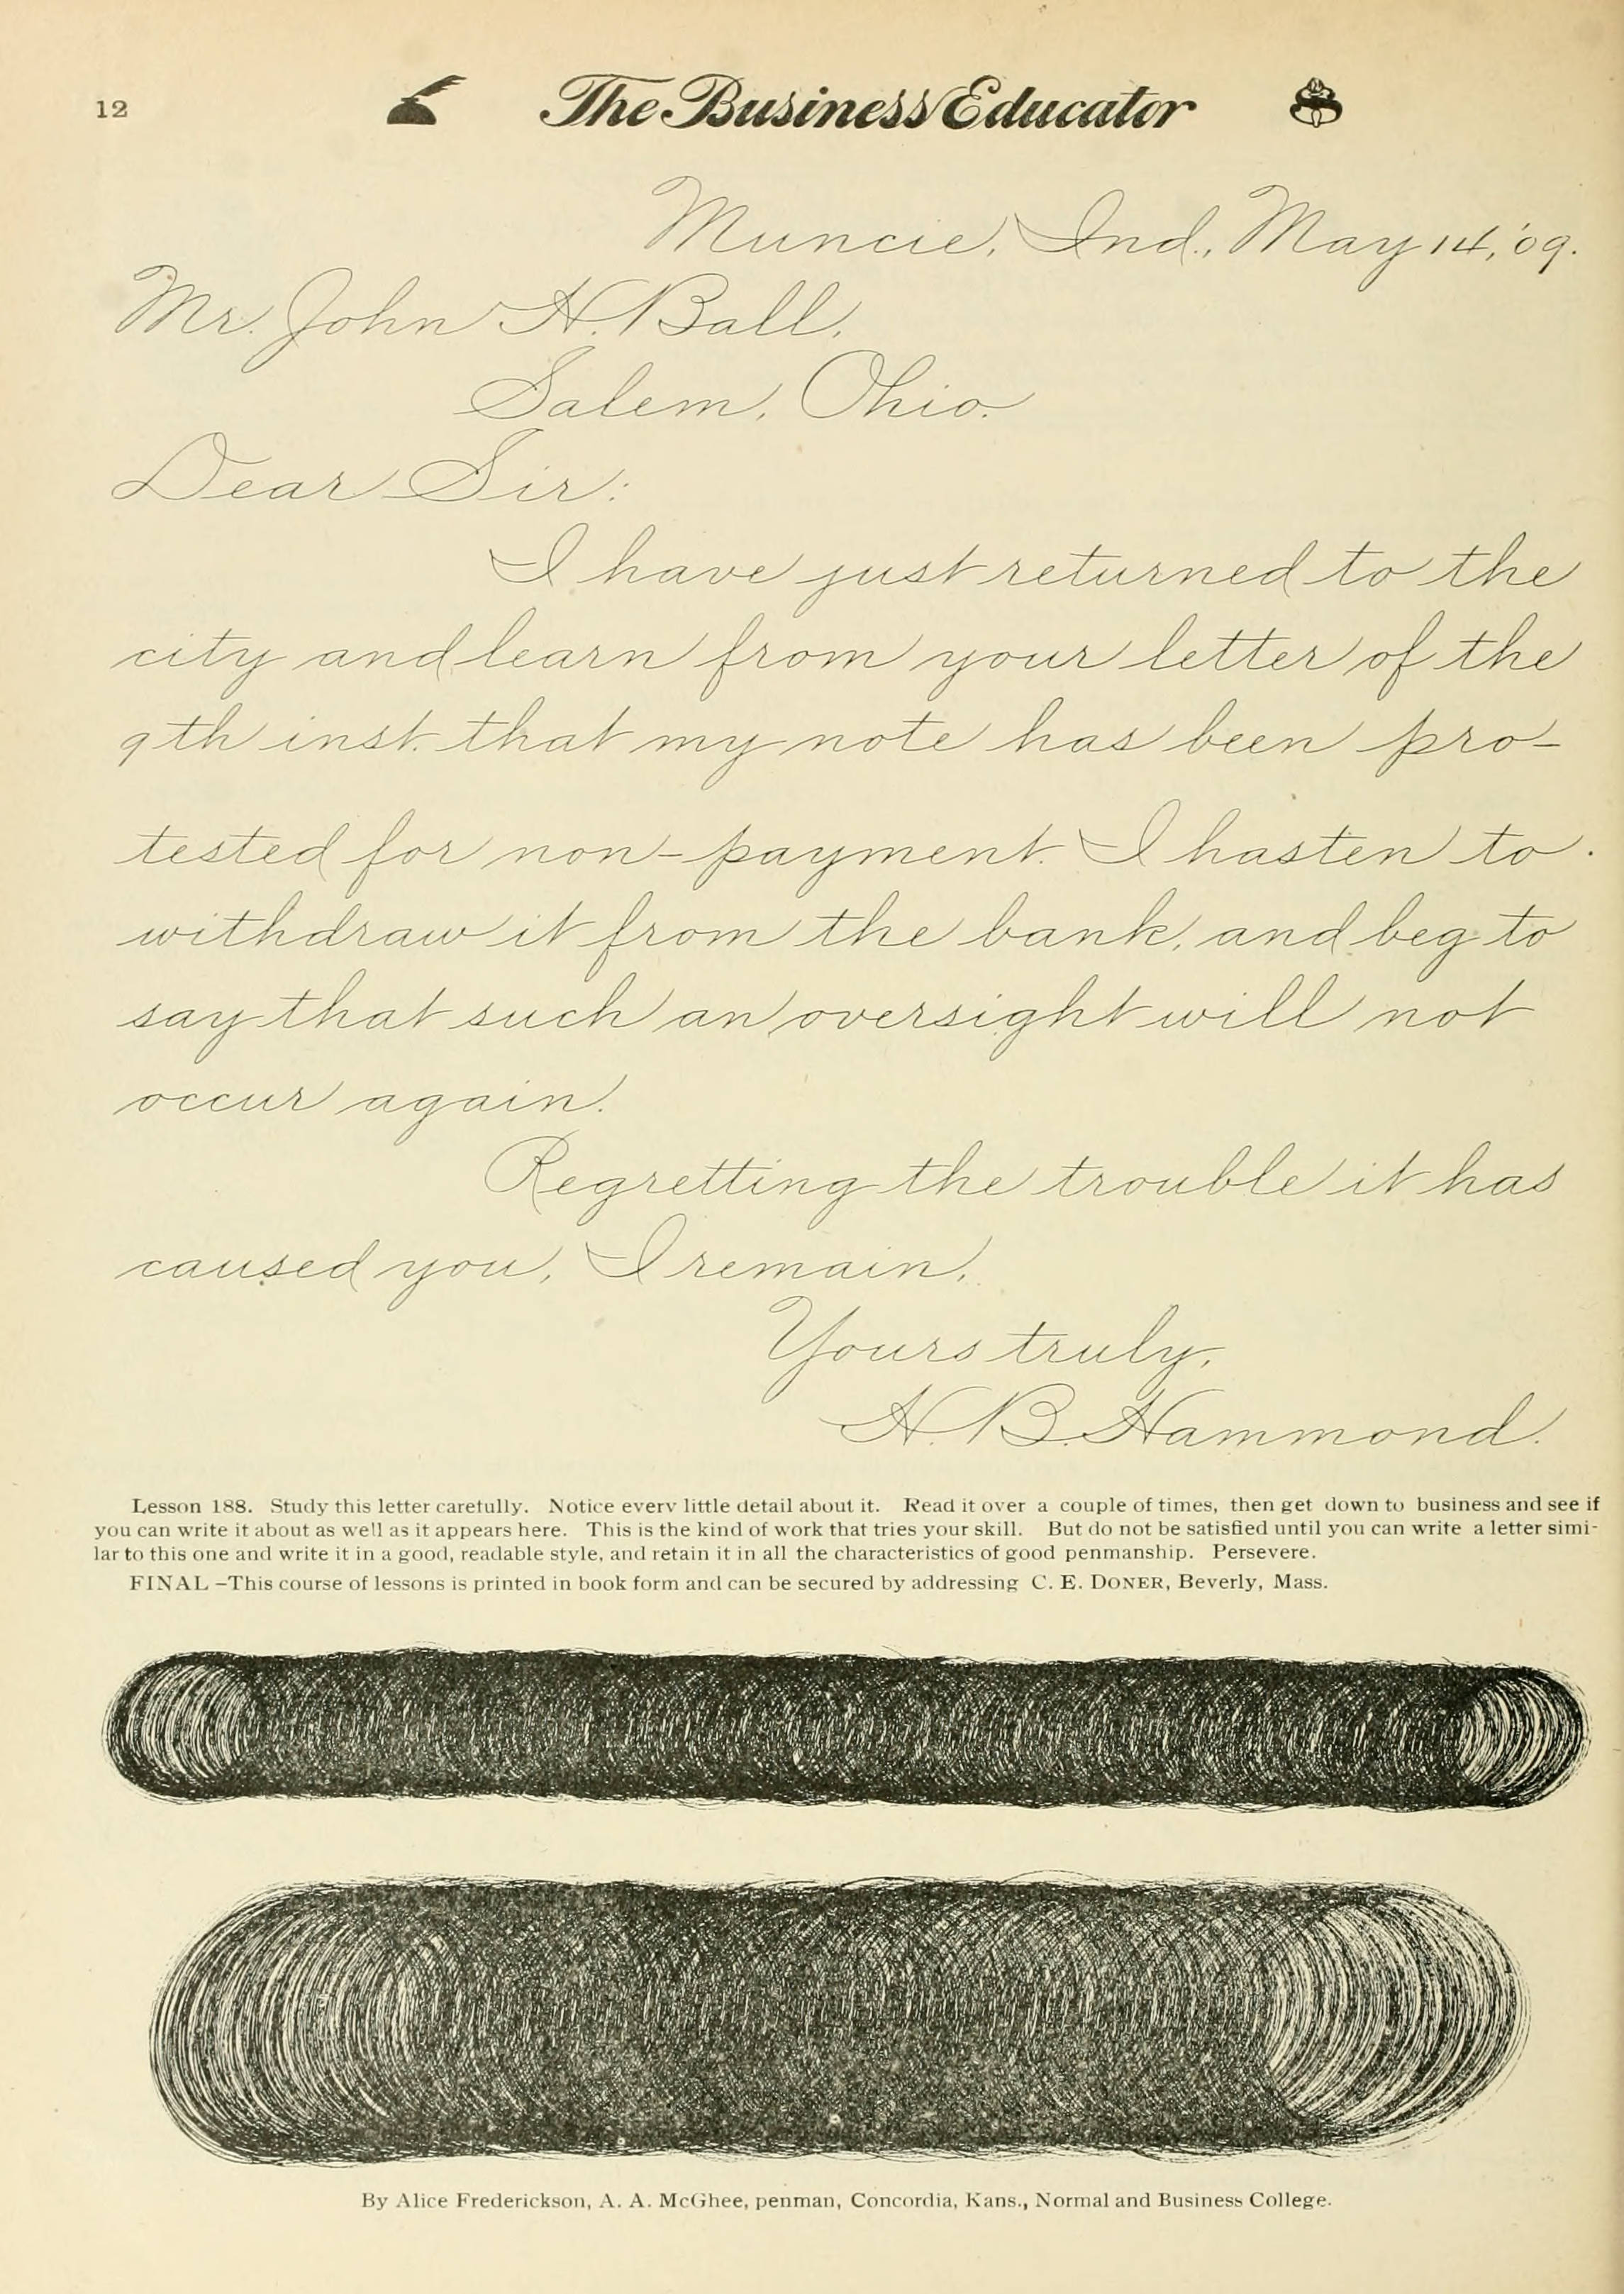 12
The Business Educator
Muncie, Ind., May 14, '09.
Mr. John H. Ball,
Salem, Ohio.
Dear Sir:
I have just returned to the
city and learn from your letter of the
9th inst. that my note has been pro-
tested for non-payment. I hasten to
withdraw it from the bank, and beg to
say that such an oversight will not
occur again.
Regretting the trouble it has
caused you, I remain,
Yours truly,
H. B. Hammond.
Lesson 188. Study this letter carefully. Notice every little detail about it. Read it over a couple of times, then get down to business and see if
you can write it about as well as it appears here. This is the kind of work that tries your skill. But do not be satisfied until you can write a letter simi-
lar to this one and write it in a good, readable style, and retain it in all the characteristics of good penmanship. Persevere.
FINAL –This course of lessons is printed in book form and can be secured by addressing C. E. DONER, Beverly, Mass.
By Alice Frederickson, A. A. McGhee, penman, Concordia, Kans., Normal and Business College.